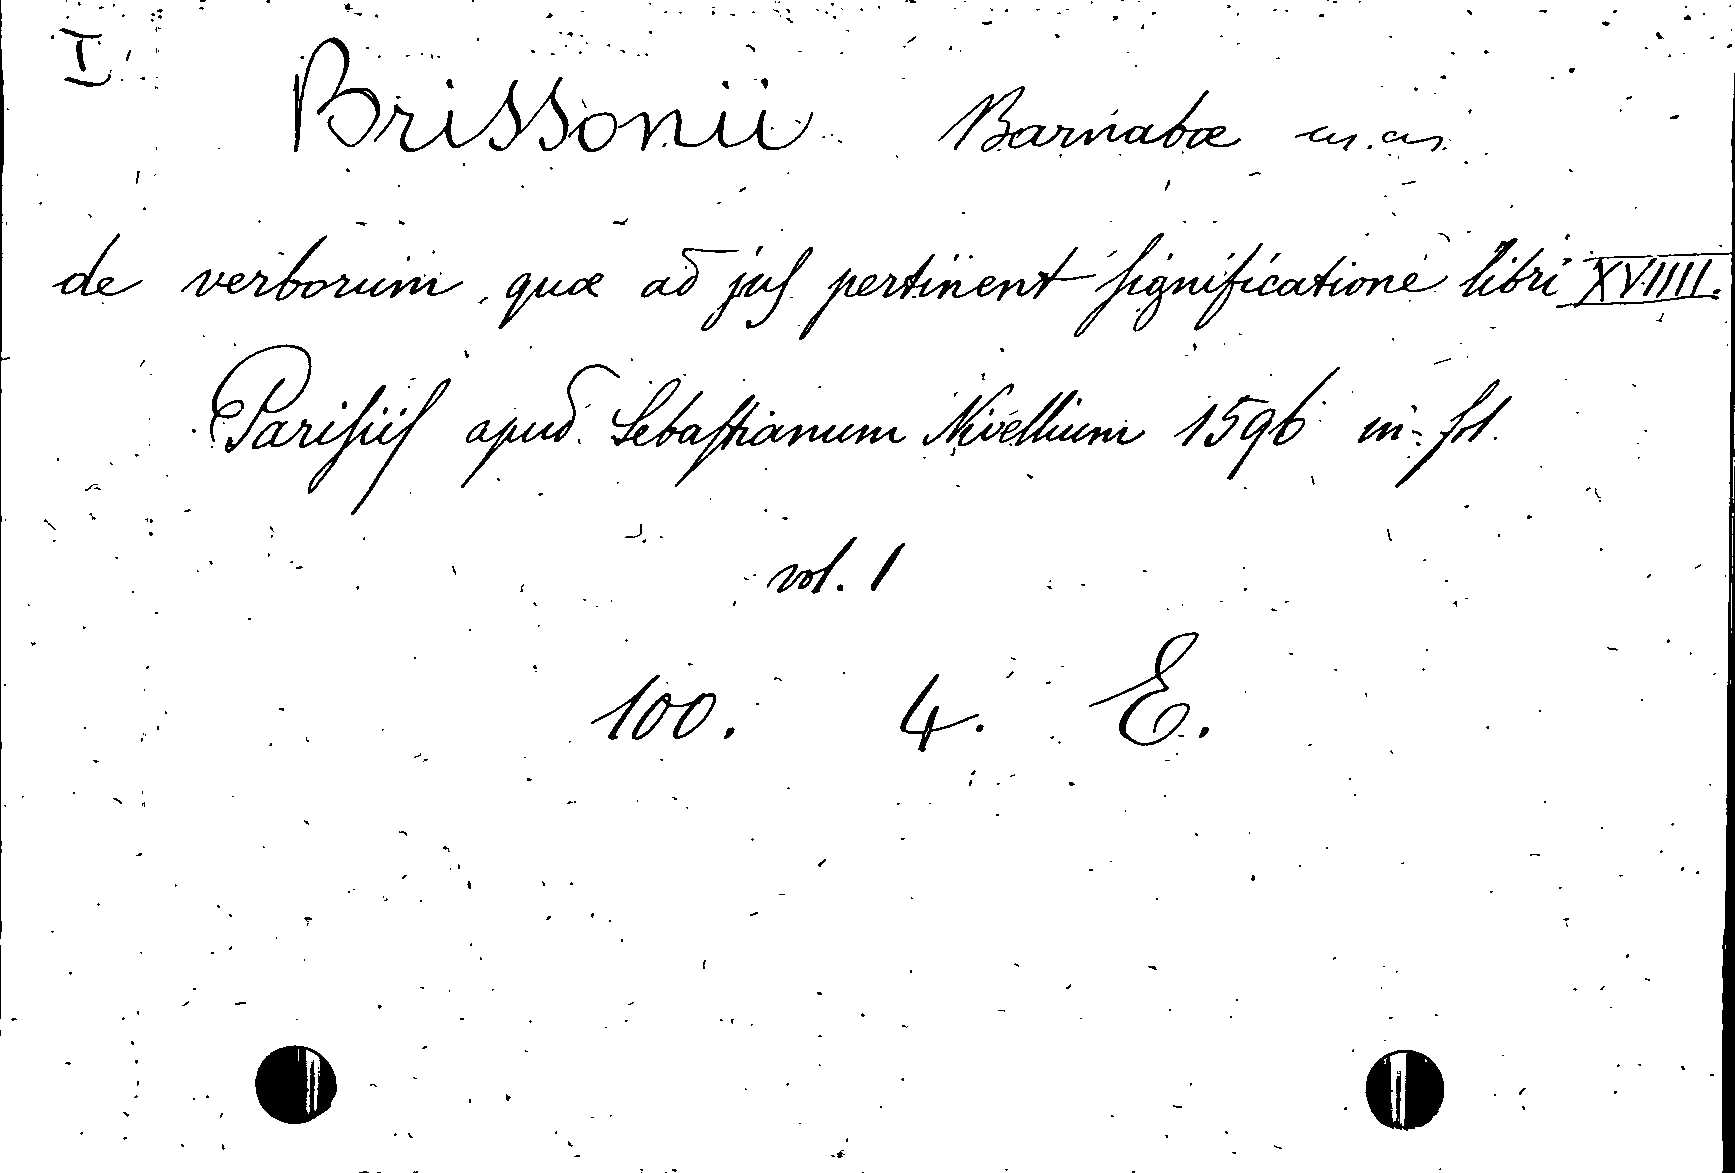 I
Brissonii Barnabæ
de verborum, quæ ad juſ pertinent ſignificatione libri XVIIII.
Pariſiiſ apud Sebaſtianum Nivellium 1596 in-fol.
vol. 1
100. 4. E.